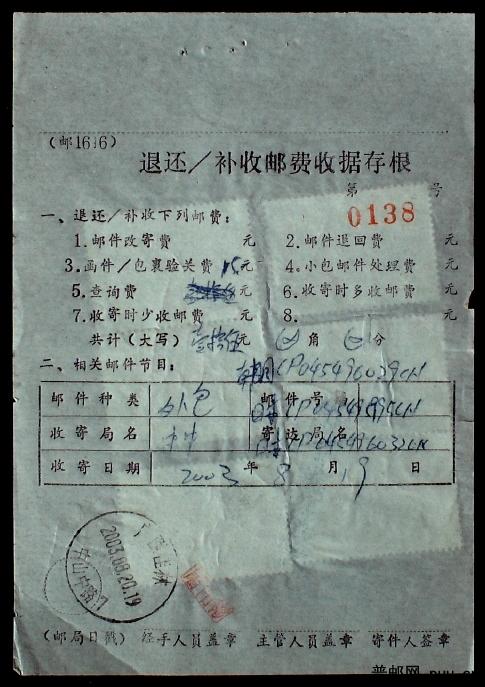 (邮1616)
退还／补收邮费收据存根
第 号
0138
一、退还／补收下列邮费：
1.邮件改寄费 元 2.邮件退回费 元
3.函件／包裹验关费 15元 4.小包邮件处理费 元
5.查询费 元 6.收寄时多收邮费 元
7.收寄时少收邮费 元 8. 元
共计(大写) 壹拾伍 元 角 分
二、相关邮件节目：
CP045496029CN
邮件种类 邮件号
收寄局名 寄达局名 CP045496032CN
收寄日期 2003 年 8 月 19 日
2003.08.20.19
(邮局日戳) 经手人员盖章 主管人员盖章 寄件人签章
普邮网